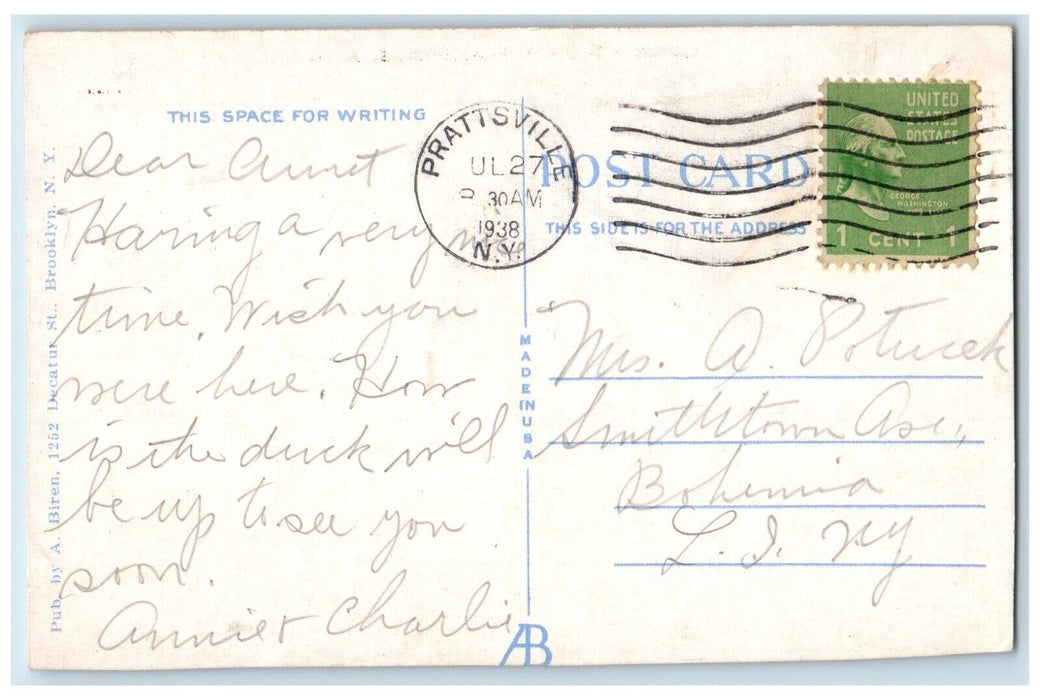 THIS SPACE FOR WRITING
Dear Aunt
Having a very nice
time. Wish you
were here. How
is the duck will
be up to see you
soon.
Annie + Charlie
Pub. by A. Biren, 1252 Decatur St., Brooklyn, N. Y.
MADE IN USA
AB
PRATTSVILLE
UL 27
30 AM
1938
N.Y.
POST CARD
THIS SIDE IS FOR THE ADDRESS
UNITED
STATES
POSTAGE
GEORGE
WASHINGTON
1 CENT 1
Mrs. A. Potucek
Smithtown Ave,
Bohemia
L. I. NY